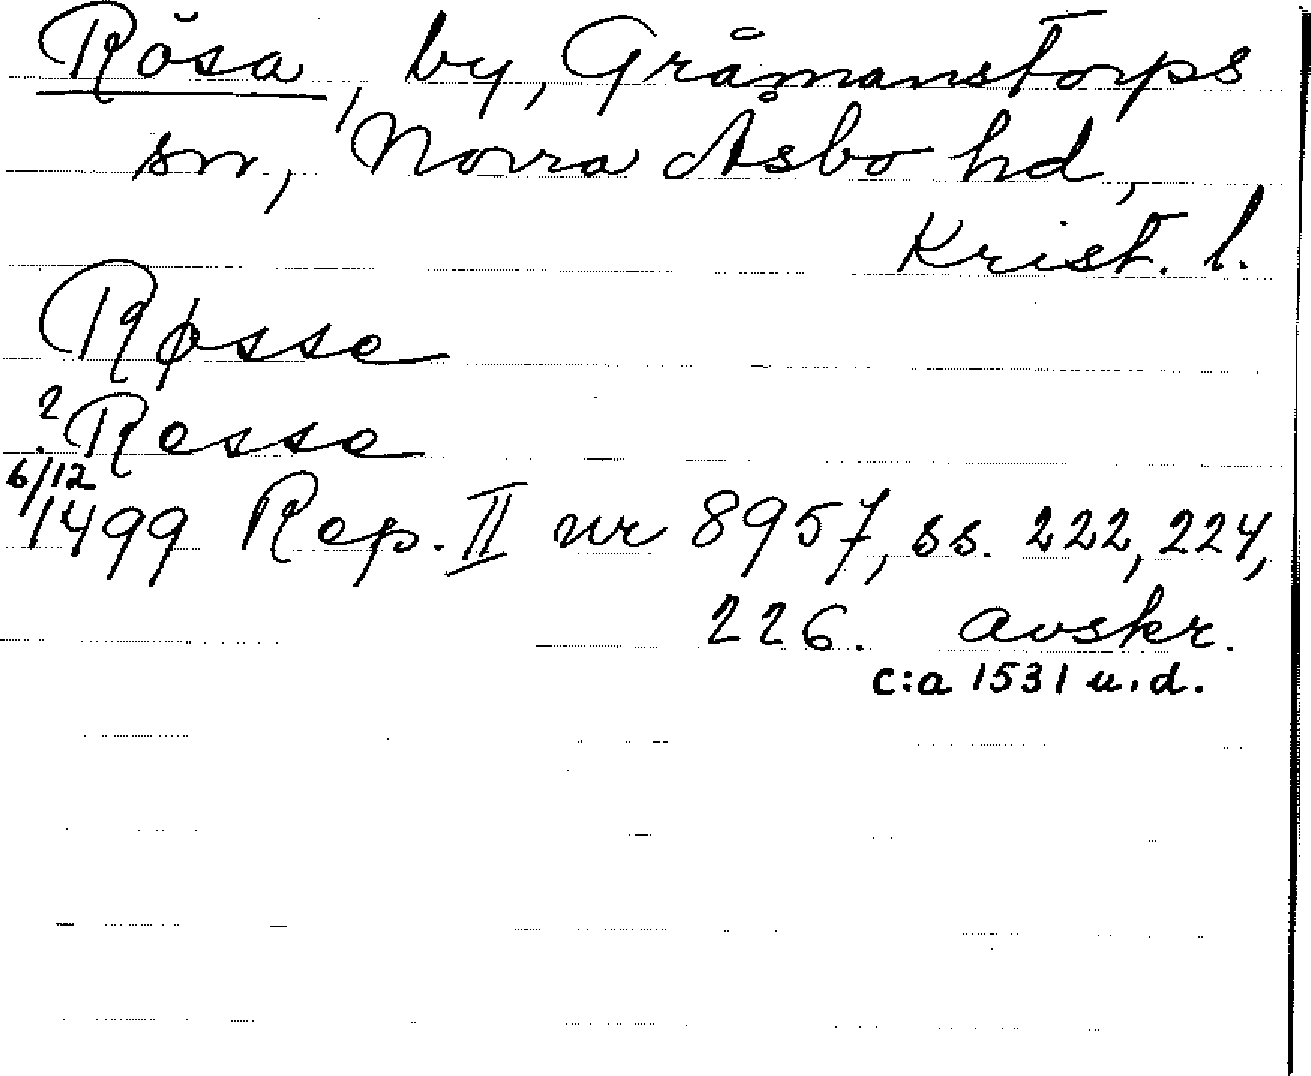 Rösa, by, Gråmanstorps
sn, Norra Åsbo hd,
Krist. l.
Røsse
? Resse
6/12
1499 Rep. II nr 8957, ss. 222, 224,
226. avskr.
c:a 1531 u.d.